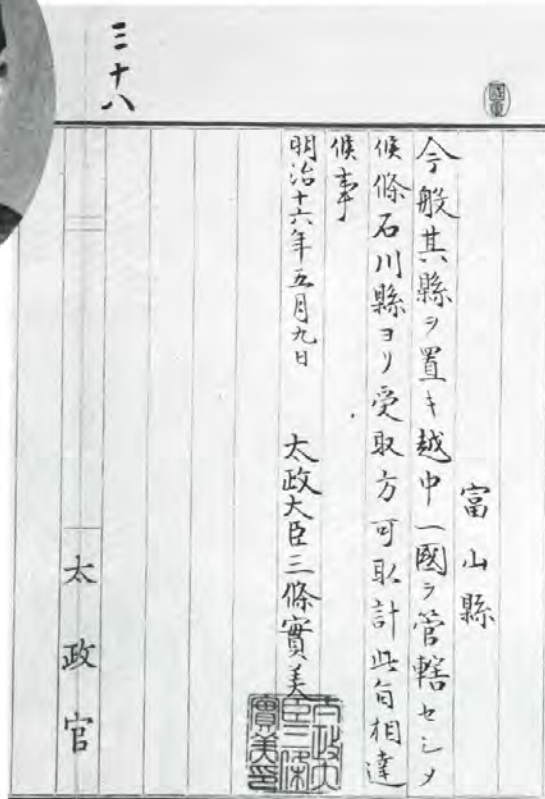 三十八
富山縣
今般其縣ヲ置キ越中一國ヲ管轄セシメ
候條石川縣ヨリ受取方可取計此旨相達
候事
明治十六年五月九日　太政大臣三條實美
太政大臣三條實美印
太政官